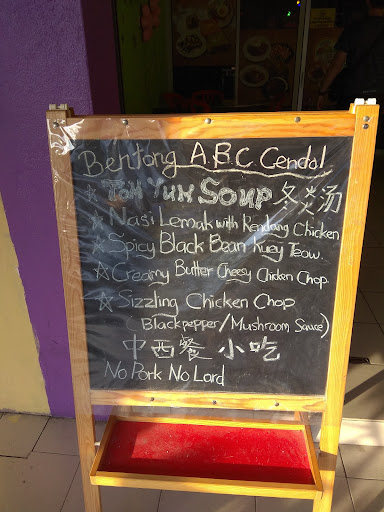 Bentong A.B.C Cendol
☆ Tom Yum Soup 冬炎汤
☆ Nasi Lemak with Rendang Chicken
☆ Spicy Black Bean Kuey Teow.
☆ Creamy Butter Cheesy Chicken Chop.
☆ Sizzling Chicken Chop
(Blackpepper/Mushroom Sauce)
中西餐 小吃
No Pork No Lard